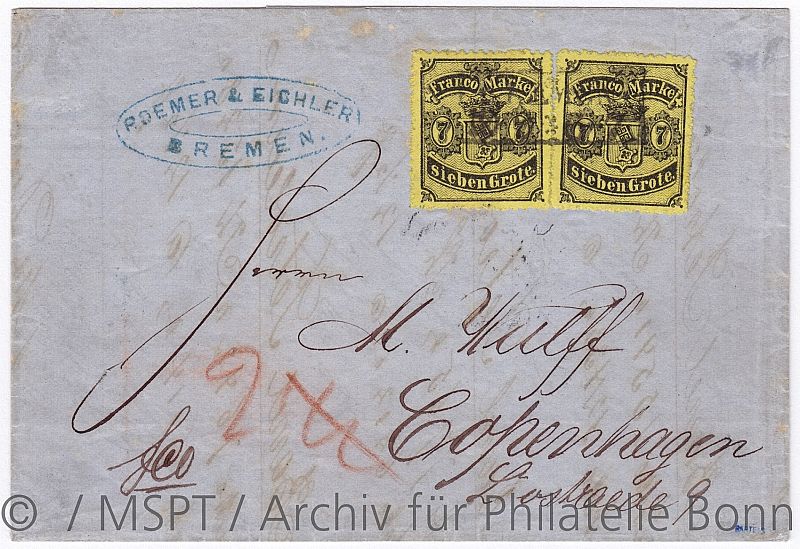 Franco Marke. Franco Marke.
7 7 7 7
Sieben Grote. Sieben Grote.
ROEMER & EICHLER
BREMEN.
Herrn
M. Wulff
Copenhagen
fco
© / MSPT / Archiv für Philatelie Bonn